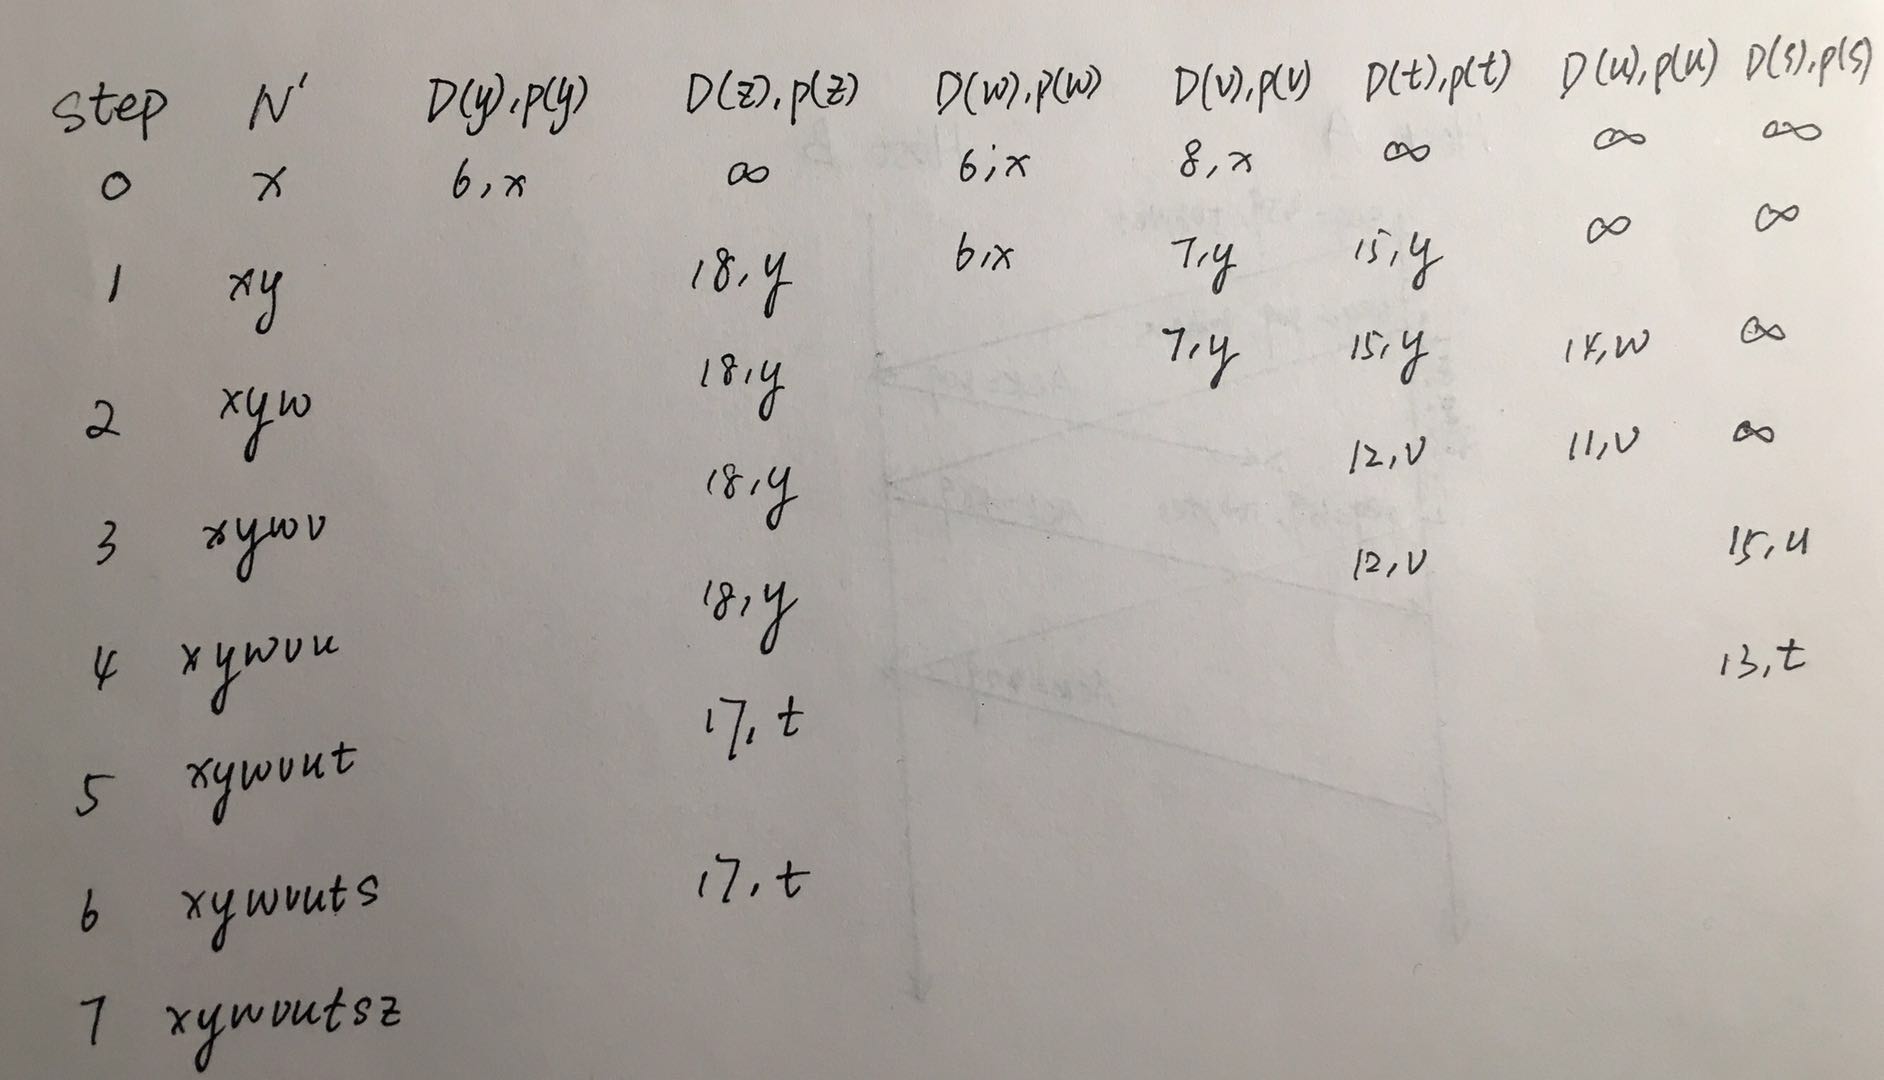 step N' D(y),p(y) D(z),p(z) D(w),p(w) D(v),p(v) D(t),p(t) D(u),p(u) D(s),p(s)
0 x 6,x ∞ 6,x 8,x ∞ ∞ ∞
1 xy 18,y 6,x 7,y 15,y ∞ ∞
2 xyw 18,y 7,y 15,y 14,w ∞
3 xywv 18,y 12,v 11,v ∞
4 xywvu 18,y 12,v 15,u
5 xywvut 17,t 13,t
6 xywvuts 17,t
7 xywvutsz